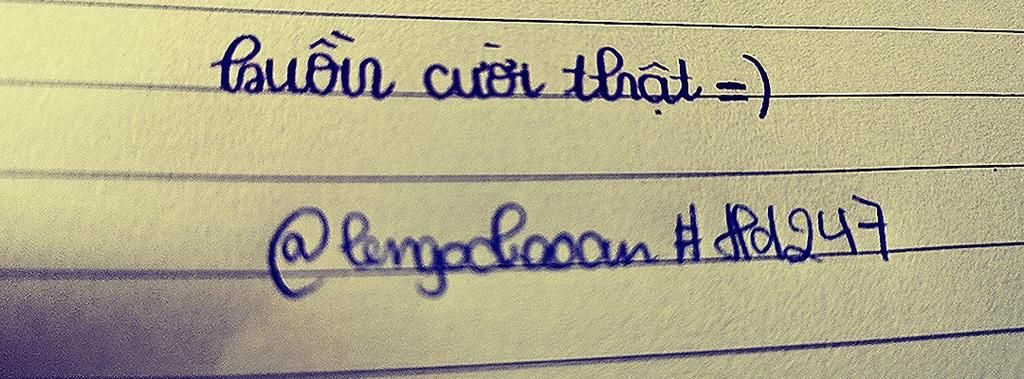 buồn cười thật =)
@lengocbaoan # #d247